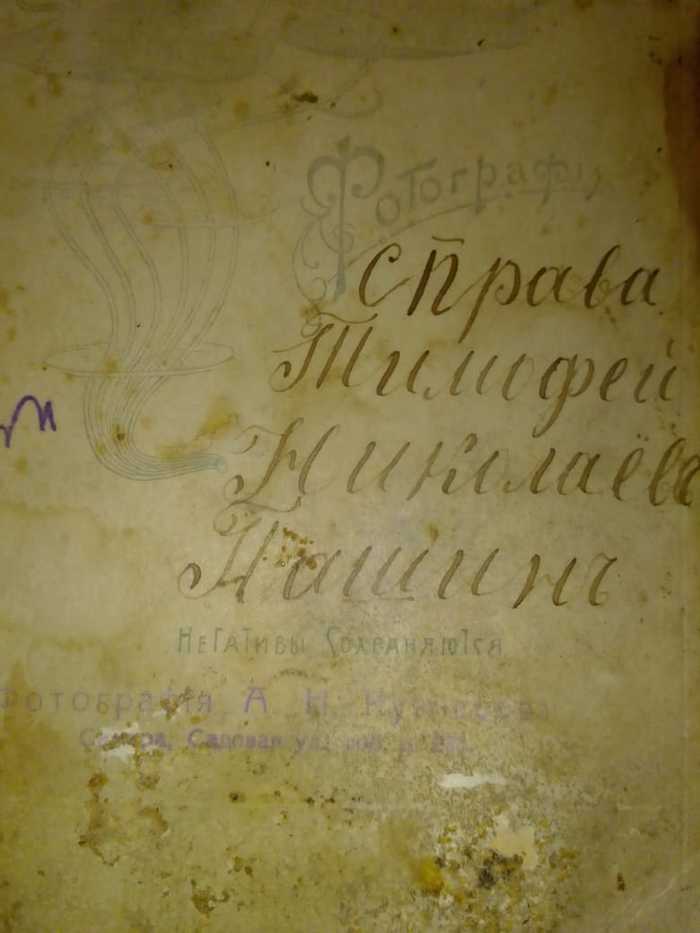 Фотографія
справа
Тимофей
Николаёв
Пашинъ
Негативы Сохраняются
Фотографія А Н
Самара, Садовая ул.